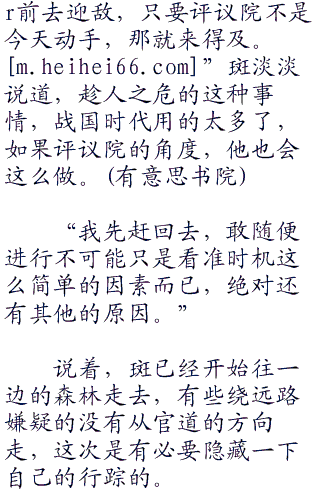 r前去迎敌，只要评议院不是
今天动手，那就来得及。
[m.heihei66.com]”斑淡淡
说道，趁人之危的这种事
情，战国时代用的太多了，
如果评议院的角度，他也会
这么做。(有意思书院)
“我先赶回去，敢随便
进行不可能只是看准时机这
么简单的因素而已，绝对还
有其他的原因。”
说着，斑已经开始往一
边的森林走去，有些绕远路
嫌疑的没有从官道的方向
走，这次是有必要隐藏一下
自己的行踪的。